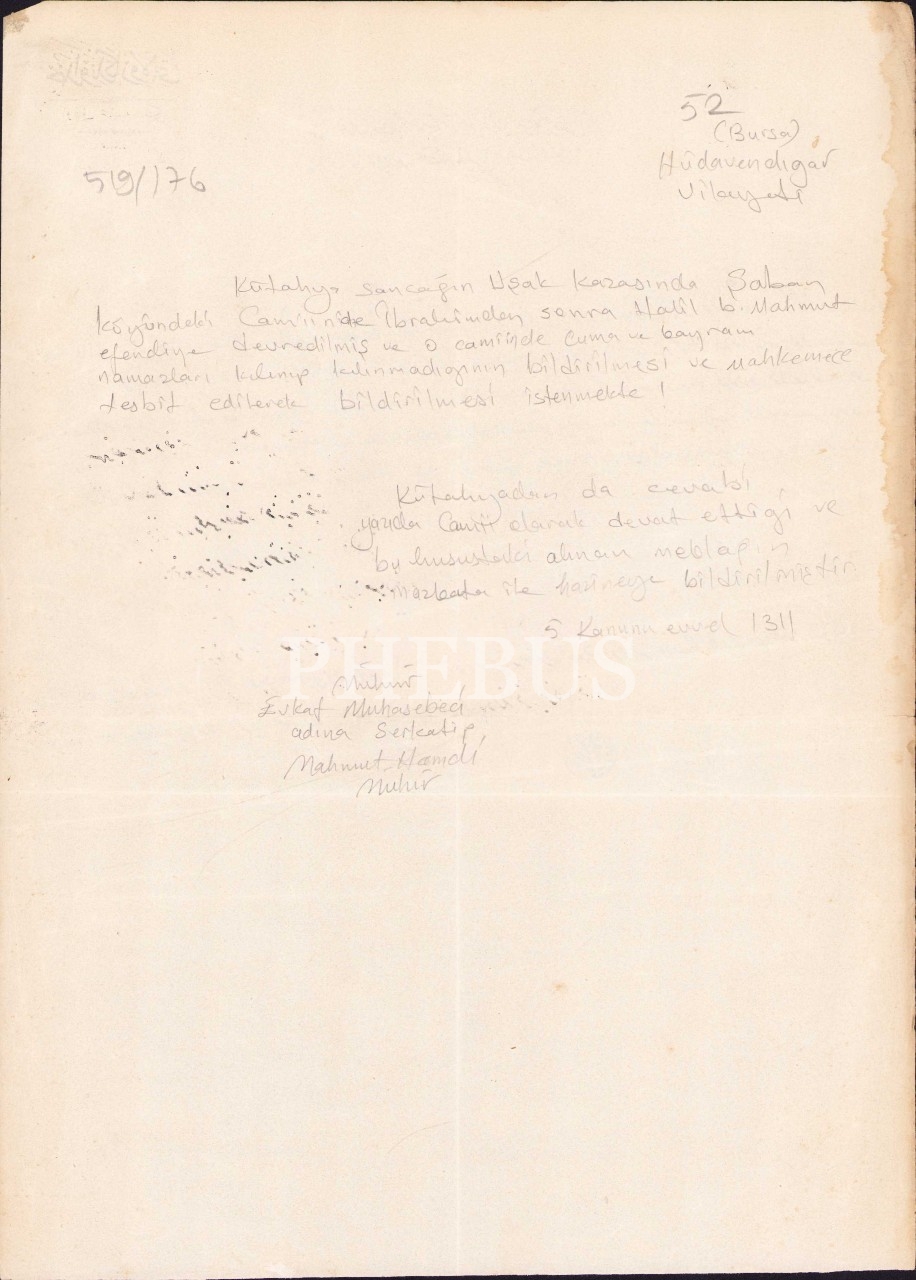 52
(Bursa)
Hûdavendigâr
Vilayeti
519/176
Kütahya sancağın Uşak kazasında Şaban
köyündeki Camiinde İbrahimden sonra Halil b. Mahmut
efendiye devredilmiş ve o camiinde Cuma ve bayram
namazları kılınıp kılınmadığının bildirilmesi ve mahkemece
tesbit edilerek bildirilmesi istenmekte!
Kütahyadan da cevabi
yazıda Camii olarak devat ettiği ve
bu husustaki alınan meblağın
mazbata ile hazineye bildirilmiştir.
5 Kanunu evvel 1311
PHEBUS
Mühür
Evkaf Muhasebeci
adına Serkatip
Mahmut Hamdi
Mühür